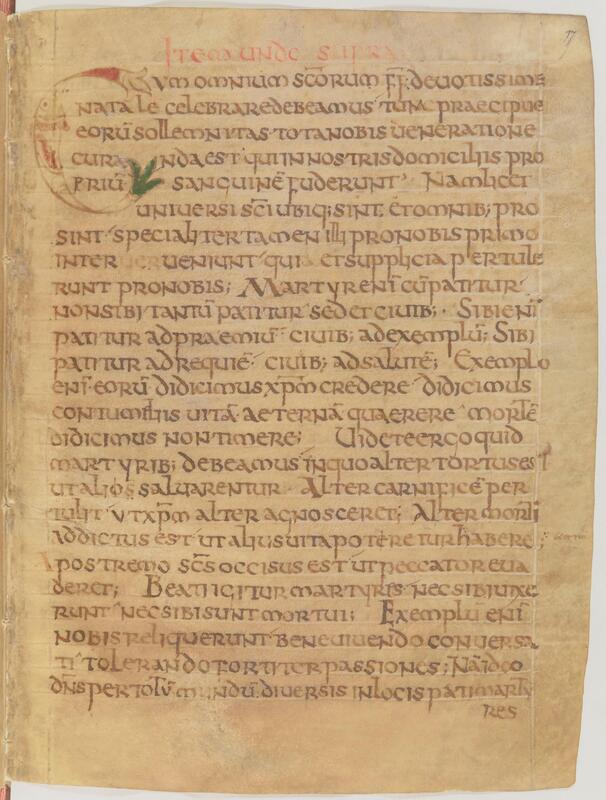 Item unde supra
Cvm omnium scōrum ff deuotissime
natale celebrare debeamus tum praecipue
eorū sollemnitas tota nobis ueneratione
curanda est qui in nostris domiciliis pro
priū sanguinē fuderunt. Nam licet
uniuersi sc̄i ubiq; sint et omnib; pro
sint specialiter tamen illi pro nobis primo
inter ueniunt qui et supplicia pertule
runt pro nobis; Martyr enī cū patitur
non sibi tantū patitur sed et ciuib;. Sibi enī
patitur ad praemiū ciuib; ad exemplū; Sibi
patitur ad requiē ciuib; ad salutē; Exemplo
enī eorū didicimus xp̄m credere didicimus
contumeliis uitā aeternā quaerere mortē
didicimus non timere; Uidete ergo quid
martyrib; debeamus in quo alter tortus est
ut alios saluarentur. Alter carnificē per
tulit vt xp̄m alter agnosceret; Alter morti
addictus est ut alius uita poteretur habere;
postremo sc̄s occisus est ut peccator eua
deret; Beati igitur martyres nec sibi uixe
runt nec sibi sunt mortui; Exemplū enī
nobis reliquerunt bene uiuendo conuersa
ti tolerando fortiter passiones; Nā ideo
dn̄s per totū mundū diuersis in locis pati marty
res